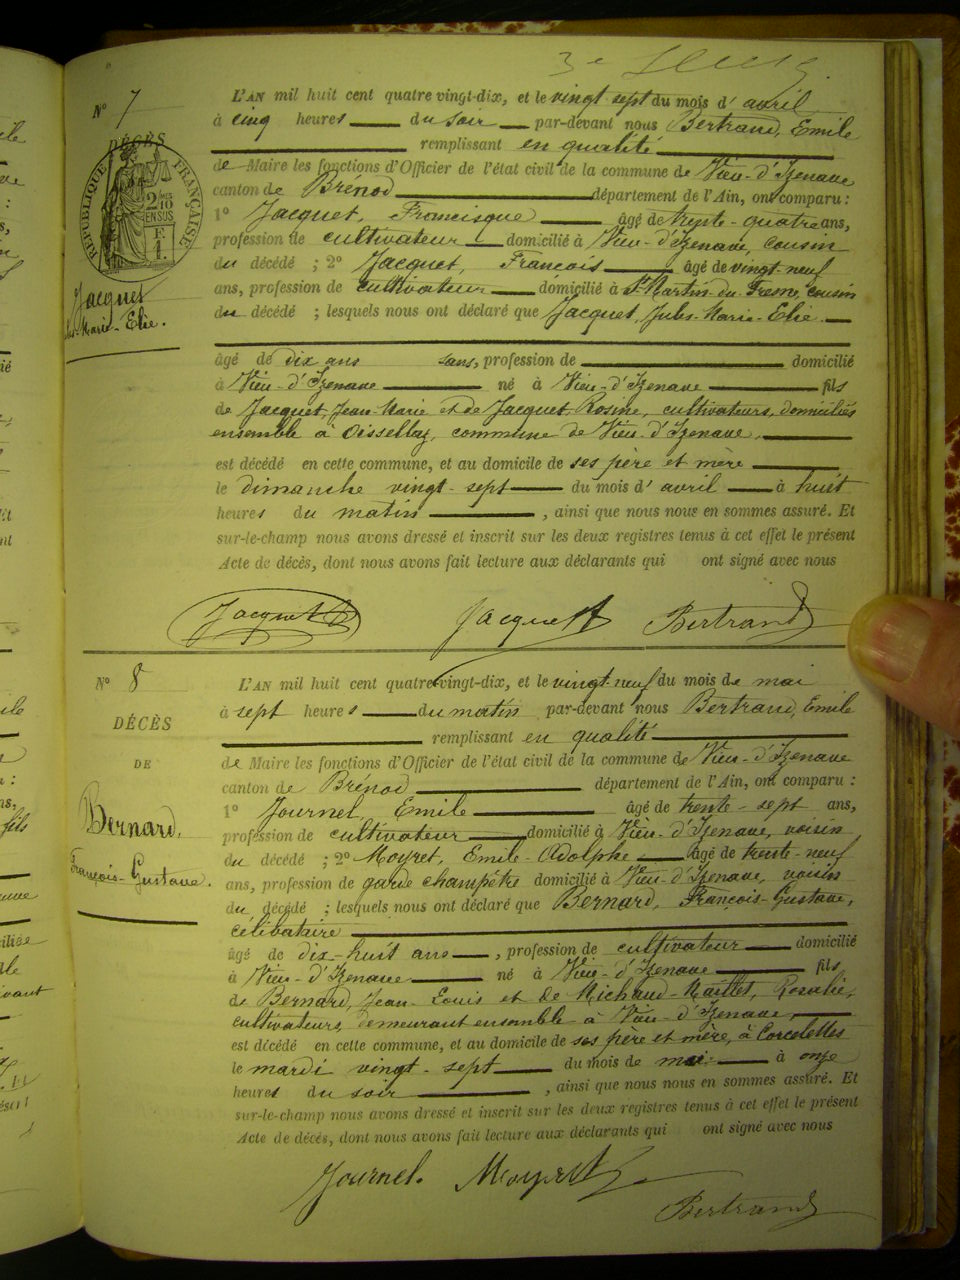 N° 7
DÉCÈS
RÉPUBLIQUE FRANÇAISE
2/10 EN SUS
F. 1.
Jacquet
Jules-Marie-Elie.
L'AN mil huit cent quatre vingt-dix, et le vingt sept du mois d'avril
à cinq heures du soir par-devant nous Bertrand, Emile
remplissant en qualité
de Maire les fonctions d'Officier de l'état civil de la commune de Vieu-d'Izenave
canton de Brénod département de l'Ain, ont comparu :
1° Jacquet, Francisque âgé de trente-quatre ans,
profession de cultivateur domicilié à Vieu-d'Izenave, cousin
du décédé ; 2° Jacquet, François âgé de vingt-neuf
ans, profession de cultivateur domicilié à St Martin-du-Fresne, cousin
du décédé ; lesquels nous ont déclaré que Jacquet, Jules-Marie-Elie.
âgé de dix ans sans, profession de domicilié
à Vieu-d'Izenave né à Vieu-d'Izenave fils
de Jacquet, Jean-Marie et de Jacquet, Rosine, cultivateurs, domiciliés
ensemble à Oissellaz, commune de Vieu-d'Izenave,
est décédé en cette commune, et au domicile de ses père et mère
le dimanche vingt-sept du mois d'avril à huit
heures du matin , ainsi que nous nous en sommes assuré. Et
sur-le-champ nous avons dressé et inscrit sur les deux registres tenus à cet effet le présent
Acte de décès, dont nous avons fait lecture aux déclarants qui ont signé avec nous
Jacquet Jacquet Bertrand
N° 8
DÉCÈS
DE
Bernard,
François-Gustave.
L'AN mil huit cent quatre-vingt-dix, et le vingt-neuf du mois de mai
à sept heures du matin par-devant nous Bertrand, Emile
remplissant en qualité
de Maire les fonctions d'Officier de l'état civil de la commune de Vieu-d'Izenave
canton de Brénod département de l'Ain, ont comparu :
1° Journel, Emile âgé de trente-sept ans,
profession de cultivateur domicilié à Vieu-d'Izenave, voisin
du décédé ; 2° Moyret, Emile-Adolphe âgé de trente-neuf
ans, profession de garde champêtre domicilié à Vieu-d'Izenave, voisin
du décédé ; lesquels nous ont déclaré que Bernard, François-Gustave,
célibataire
âgé de dix-huit ans , profession de cultivateur domicilié
à Vieu-d'Izenave né à Vieu-d'Izenave fils
de Bernard, Jean-Louis et de Michaud-Maillet, Rosalie,
cultivateurs, demeurant ensemble à Vieu-d'Izenave,
est décédé en cette commune, et au domicile de ses père et mère, à Corcelettes
le mardi vingt-sept du mois de mai à onze
heures du soir , ainsi que nous nous en sommes assuré. Et
sur-le-champ nous avons dressé et inscrit sur les deux registres tenus à cet effet le présent
Acte de décès, dont nous avons fait lecture aux déclarants qui ont signé avec nous
Journel. Moyret
Bertrand